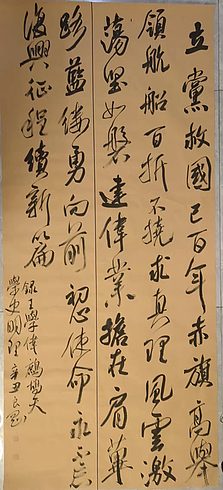 立黨救國已百年赤旗高舉
領航船百折不撓求真理風雲激
蕩堅如磐建偉業擔在肩篳
路藍縷勇向前初心使命永不忘
復興征程續新篇
錄王學偉鷓鴣天
學史明理辛丑